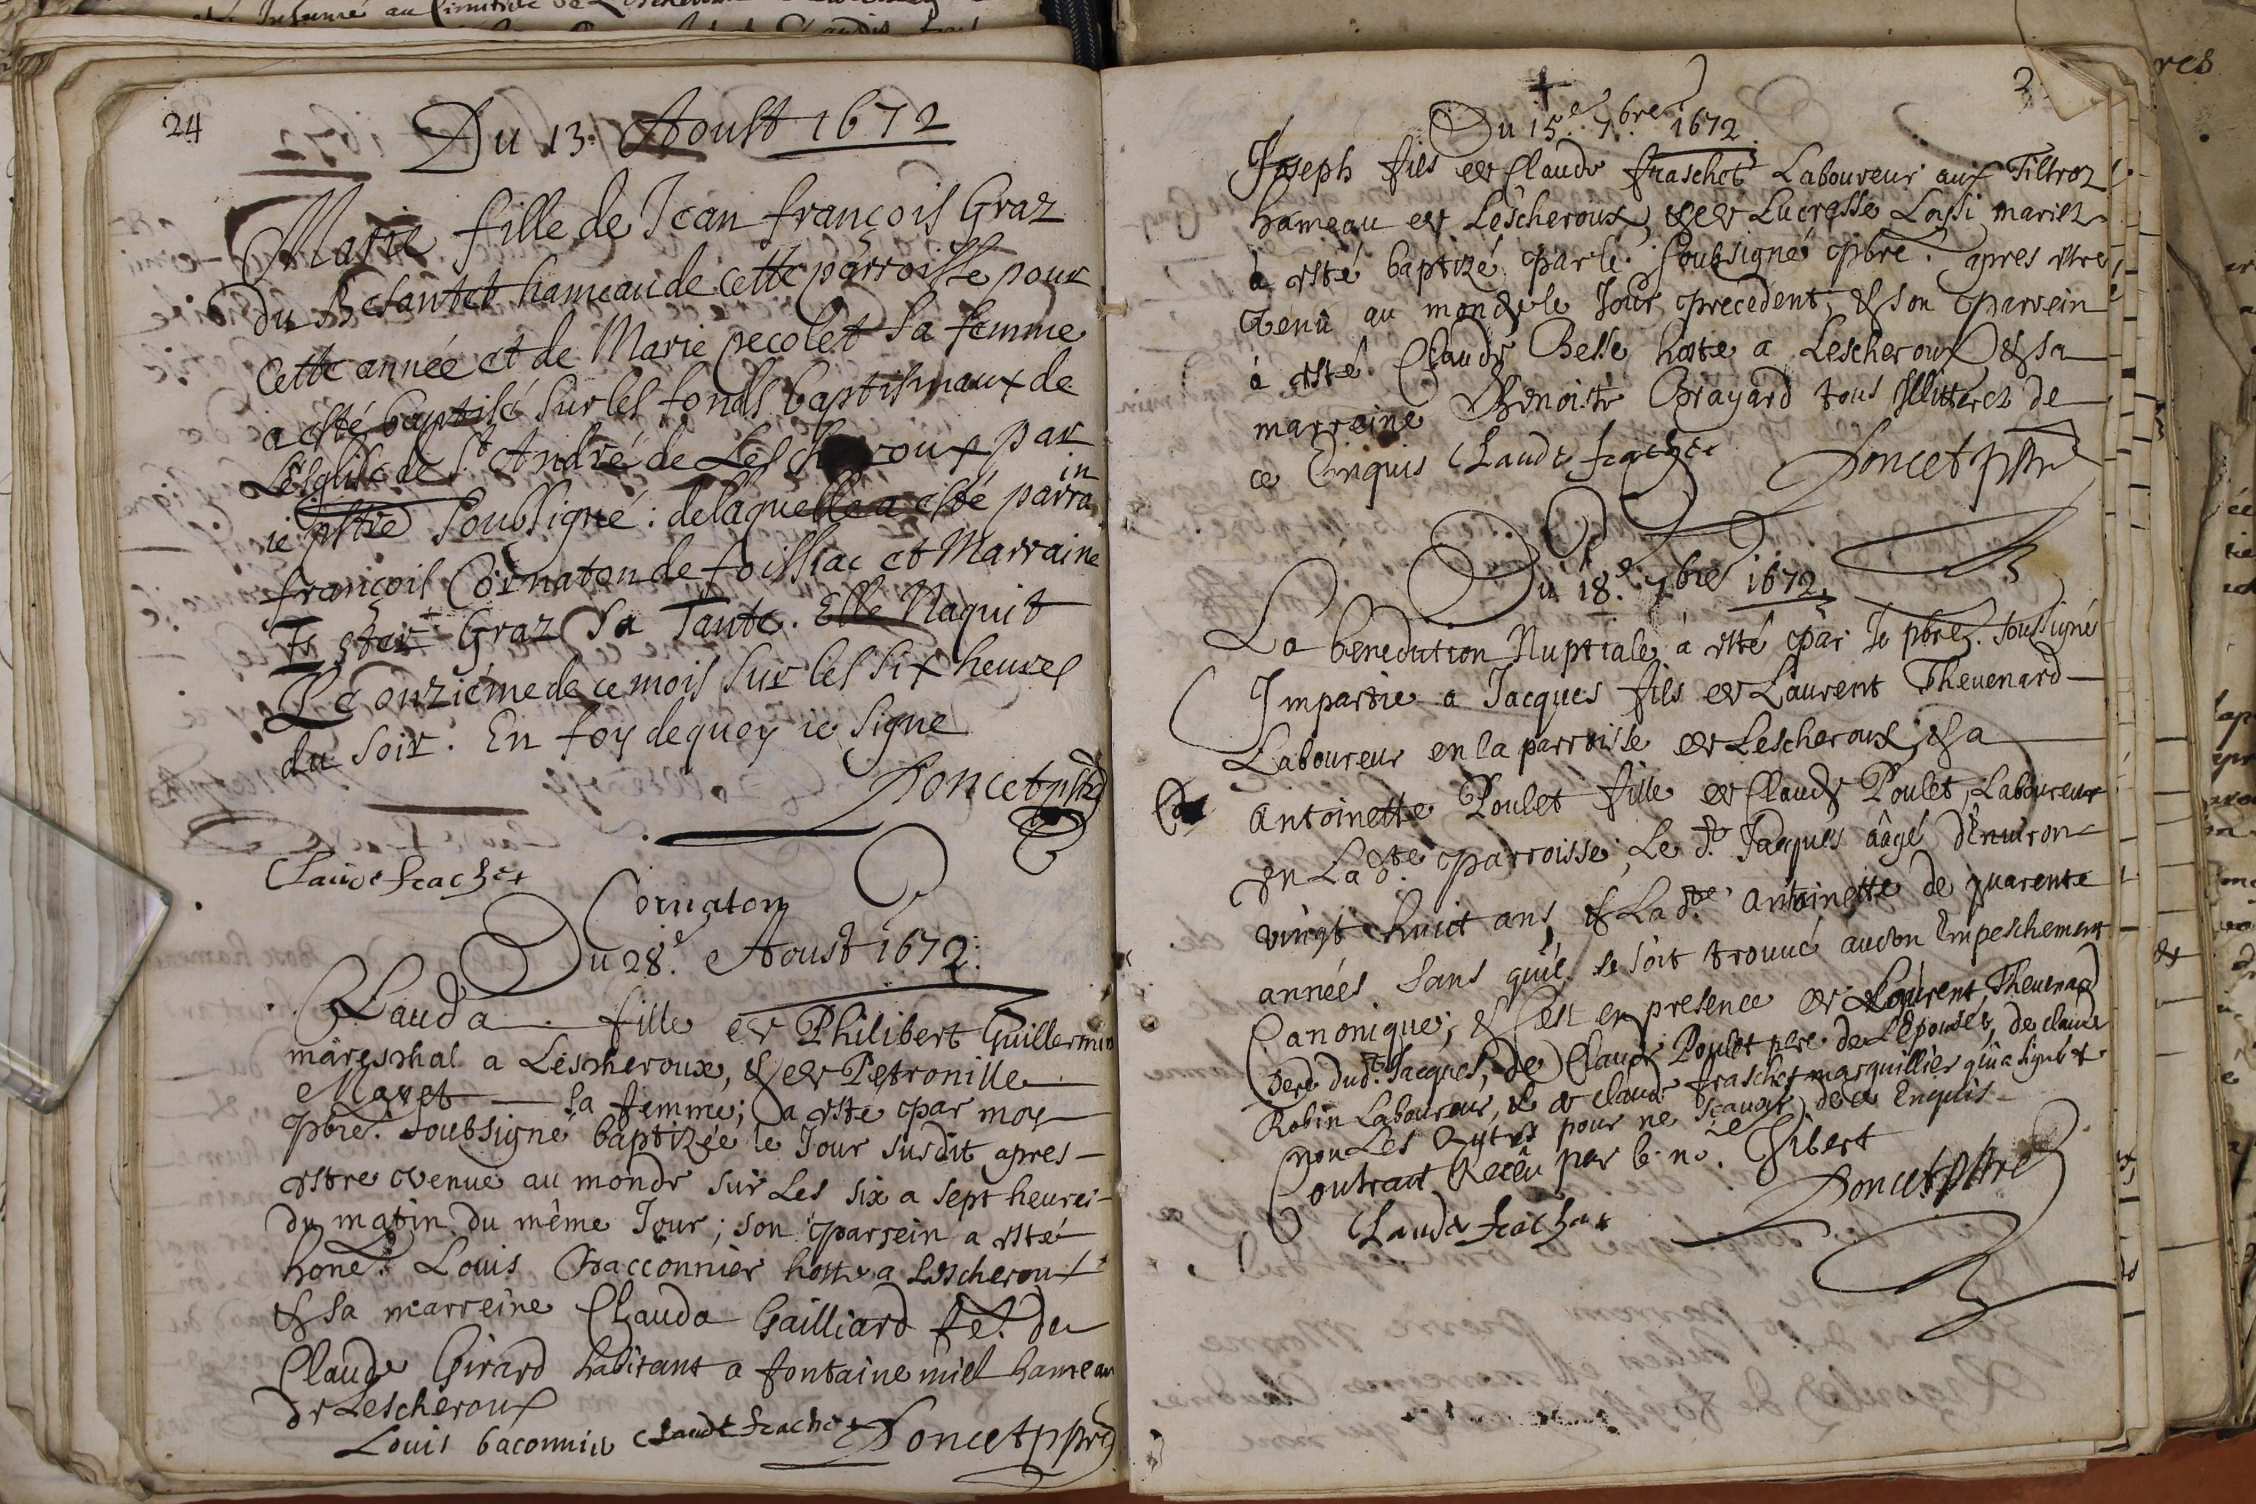 24
Du 13. Aoust 1672
Marie fille de Jean françois Graz
du Besantet hameau de cette parroisse pour
cette année et de Marie pecolet sa femme
a esté baptisé sur les fonds baptismaux de
L'esglise de St André de Lescheroux par
ie pstre soubsigné : de laquelle a esté parrain
françois Cornaton de foissiac et Marraine
Graz sa Tante. Elle Naquit
Le onziéme de ce mois sur les six heures
du soir. En foy de quoy ie signe
Poncet pstre
Claude frachet
Cornaton
Du 28e. Aoust 1672.
Clauda fille de Philibert Guillermin
mareschal a Lescheroux, & de Petronille
Mavet sa femme; a esté par moy
pbre. soubsigné baptizée le Jour susdit apres
estre venue au monde sur Les six a sept heures
du matin du même Jour; son parrein a esté
hone. Louis Bacconnier hoste a Lescheroux
& sa marreine Clauda Gailliard fe. de
Claude Girard habitant a fontaine miel hameau
de Lescheroux
Louis baconnie Claude frachet Poncet pstre
2
Du 15e. 7bre 1672.
Joseph fils de Claude fraschet Laboureur aux Tiltroz
hameau de Lescheroux, & de Lucresse Loysi mariez
a esté baptizé par le soubsigné pbre. apres estre
venu au monde le Jour precedent, & son parrein
a esté Claude Belle hoste a Lescheroux & sa
marreine Benoiste Brayard tous Illitterez de
ce Enquis Claude frachet
Poncet pstre
Du 18e. 7bre 1672.
La benediction Nuptiale a esté par le pbre. soussigné
Impartie a Jacques fils de Laurent Thevenard
Laboureur en la parroisse de Lescheroux, & a
Antoinette Poulet fille de Claude Poulet, Laboureur
en La dte. parroisse; Le dt. Jacques âagé d'environ
vingt huict ans, & La dte. Antoinette de quarente
années sans qu'il se soit trouué aucun Empeschement
Canonique; & c'est en presence de Laurent Thevenard
pere dudt. Jacques, de Claude Poulet pere de L'epouse, de claude
Robin Laboureur, & de claude fraschet marguillier qui a signé &
non Les autres pour ne sçauoir de ce Enquis
Contract Receu par Me. Gibert
Claude frachet
Poncet pstre